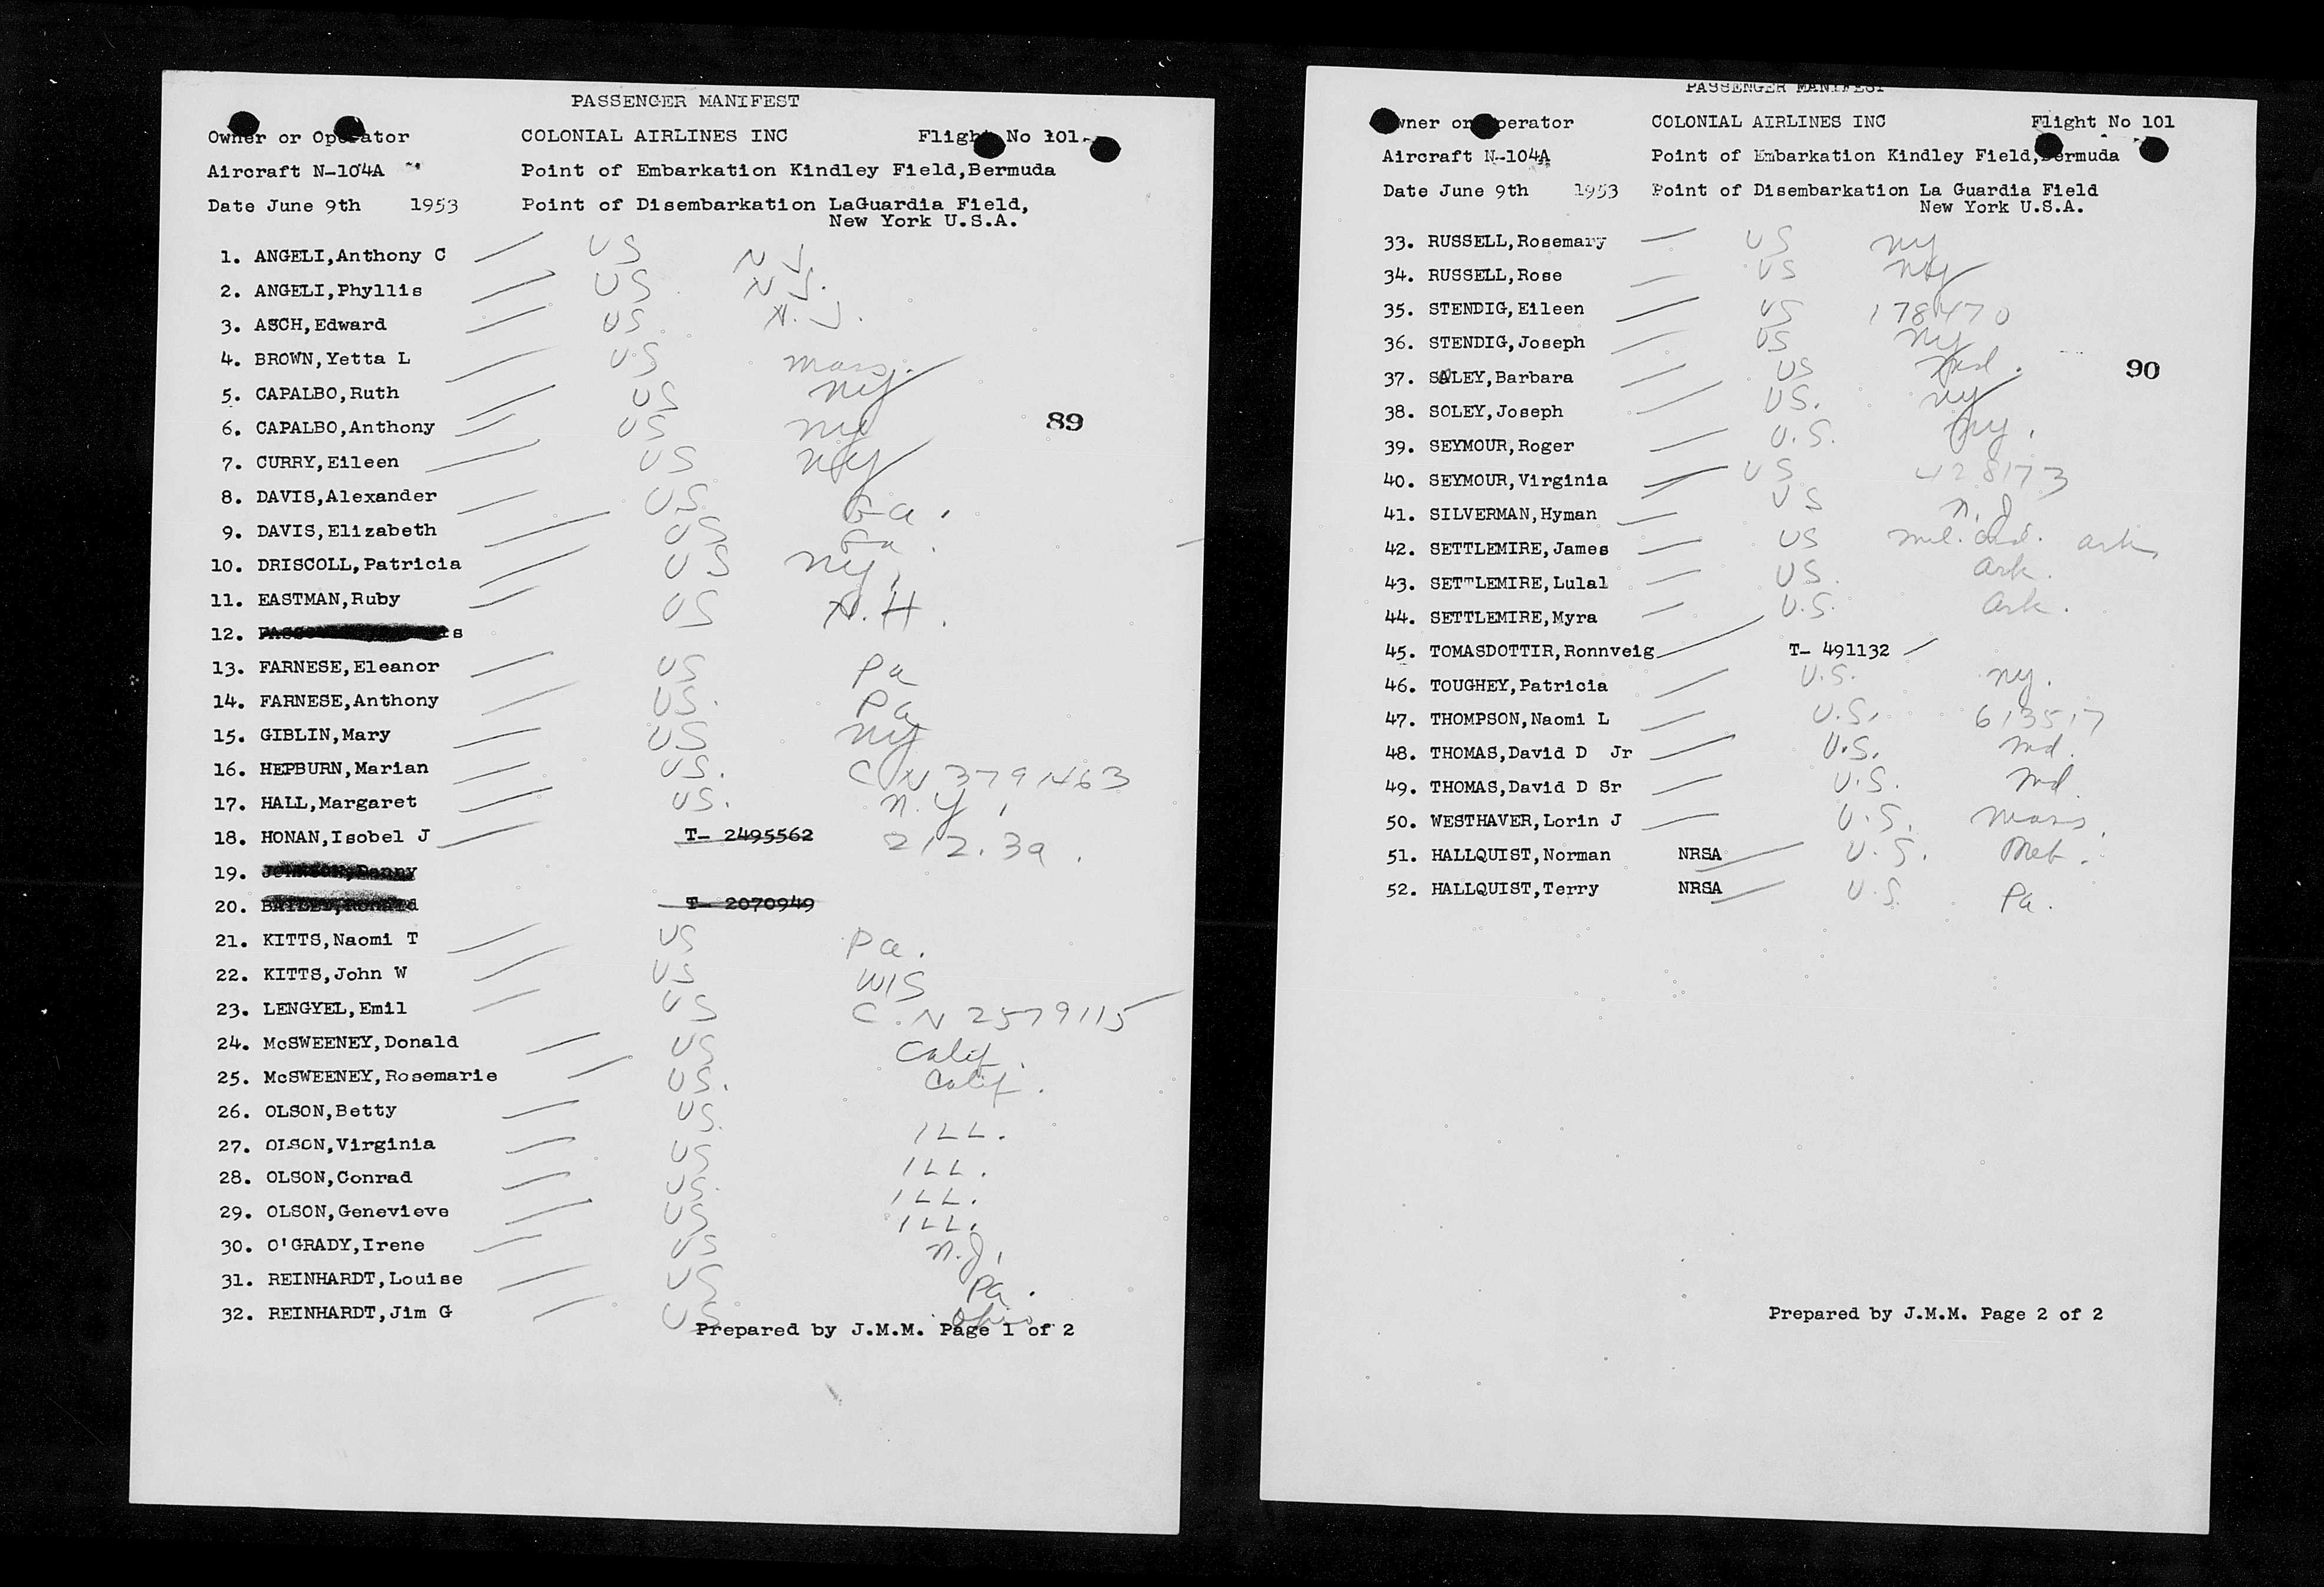 PASSENGER MANIFEST
Owner or Operator COLONIAL AIRLINES INC Flight No 101
Aircraft N-104A Point of Embarkation Kindley Field,Bermuda
Date June 9th 1953 Point of Disembarkation LaGuardia Field,
New York U.S.A.
1. ANGELI,Anthony C US N J.
2. ANGELI,Phyllis US N J.
3. ASCH,Edward US N. J.
4. BROWN,Yetta L US mass.
5. CAPALBO,Ruth US ny
89
6. CAPALBO,Anthony US ny
7. CURRY,Eileen US ny
8. DAVIS,Alexander US Ga.
9. DAVIS,Elizabeth US Ga.
10. DRISCOLL,Patricia US ny.
11. EASTMAN,Ruby US N.H.
12.
13. FARNESE,Eleanor US Pa
14. FARNESE,Anthony US. Pa
15. GIBLIN,Mary US ny
16. HEPBURN,Marian US. C N 3791463
17. HALL,Margaret US. n.y.
18. HONAN,Isobel J T- 2495562 212.3a.
19.
20. T- 2070949
21. KITTS,Naomi T US Pa.
22. KITTS,John W US WIS
23. LENGYEL,Emil US C.N 2579115
24. McSWEENEY,Donald US Calif.
25. McSWEENEY,Rosemarie US. Calif.
26. OLSON,Betty US. ILL.
27. OLSON,Virginia US ILL.
28. OLSON,Conrad US. ILL.
29. OLSON,Genevieve US ILL.
30. O'GRADY,Irene US n.J.
31. REINHARDT,Louise US Pa.
32. REINHARDT,Jim G US Ohio
Prepared by J.M.M. Page 1 of 2
PASSENGER MANIFEST
Owner or Operator COLONIAL AIRLINES INC Flight No 101
Aircraft N-104A Point of Embarkation Kindley Field,Bermuda
Date June 9th 1953 Point of Disembarkation La Guardia Field
New York U.S.A.
33. RUSSELL,Rosemary US ny
34. RUSSELL,Rose US ny
35. STENDIG,Eileen US 178470
36. STENDIG,Joseph US ny
37. SALEY,Barbara US md.
90
38. SOLEY,Joseph US. ny
39. SEYMOUR,Roger U.S. ny.
40. SEYMOUR,Virginia US 428173
41. SILVERMAN,Hyman US n.J
42. SETTLEMIRE,James US mil. ark
43. SETTLEMIRE,Lulal US. ark.
44. SETTLEMIRE,Myra U.S. ark.
45. TOMASDOTTIR,Ronnveig T- 491132
46. TOUGHEY,Patricia U.S. ny.
47. THOMPSON,Naomi L U.S. 613517
48. THOMAS,David D Jr U.S. md.
49. THOMAS,David D Sr U.S. md.
50. WESTHAVER,Lorin J U.S. mass.
51. HALLQUIST,Norman NRSA U.S.
52. HALLQUIST,Terry NRSA U.S. Pa.
Prepared by J.M.M. Page 2 of 2